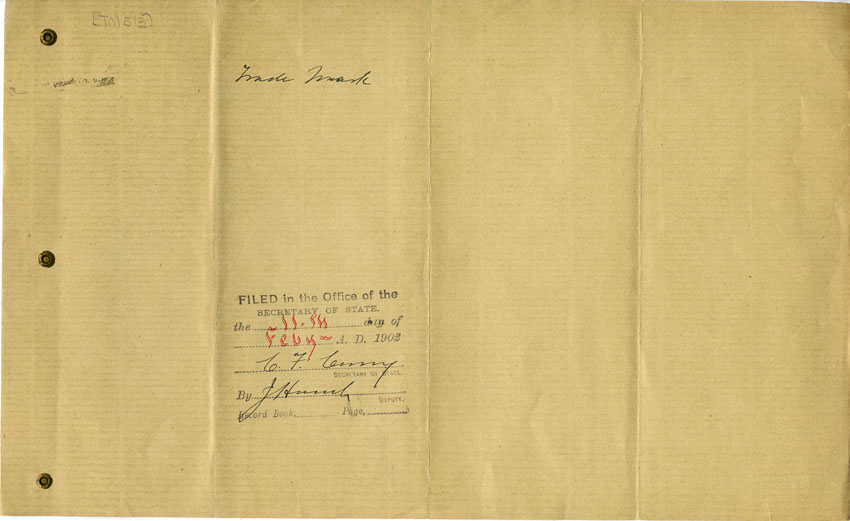 Trade Mark
FILED in the Office of the
SECRETARY OF STATE.
the 11th day of
Feby A. D. 1902
C. F. Curry
SECRETARY OF STATE.
By J Hoesch
DEPUTY.
Record Book, Page,